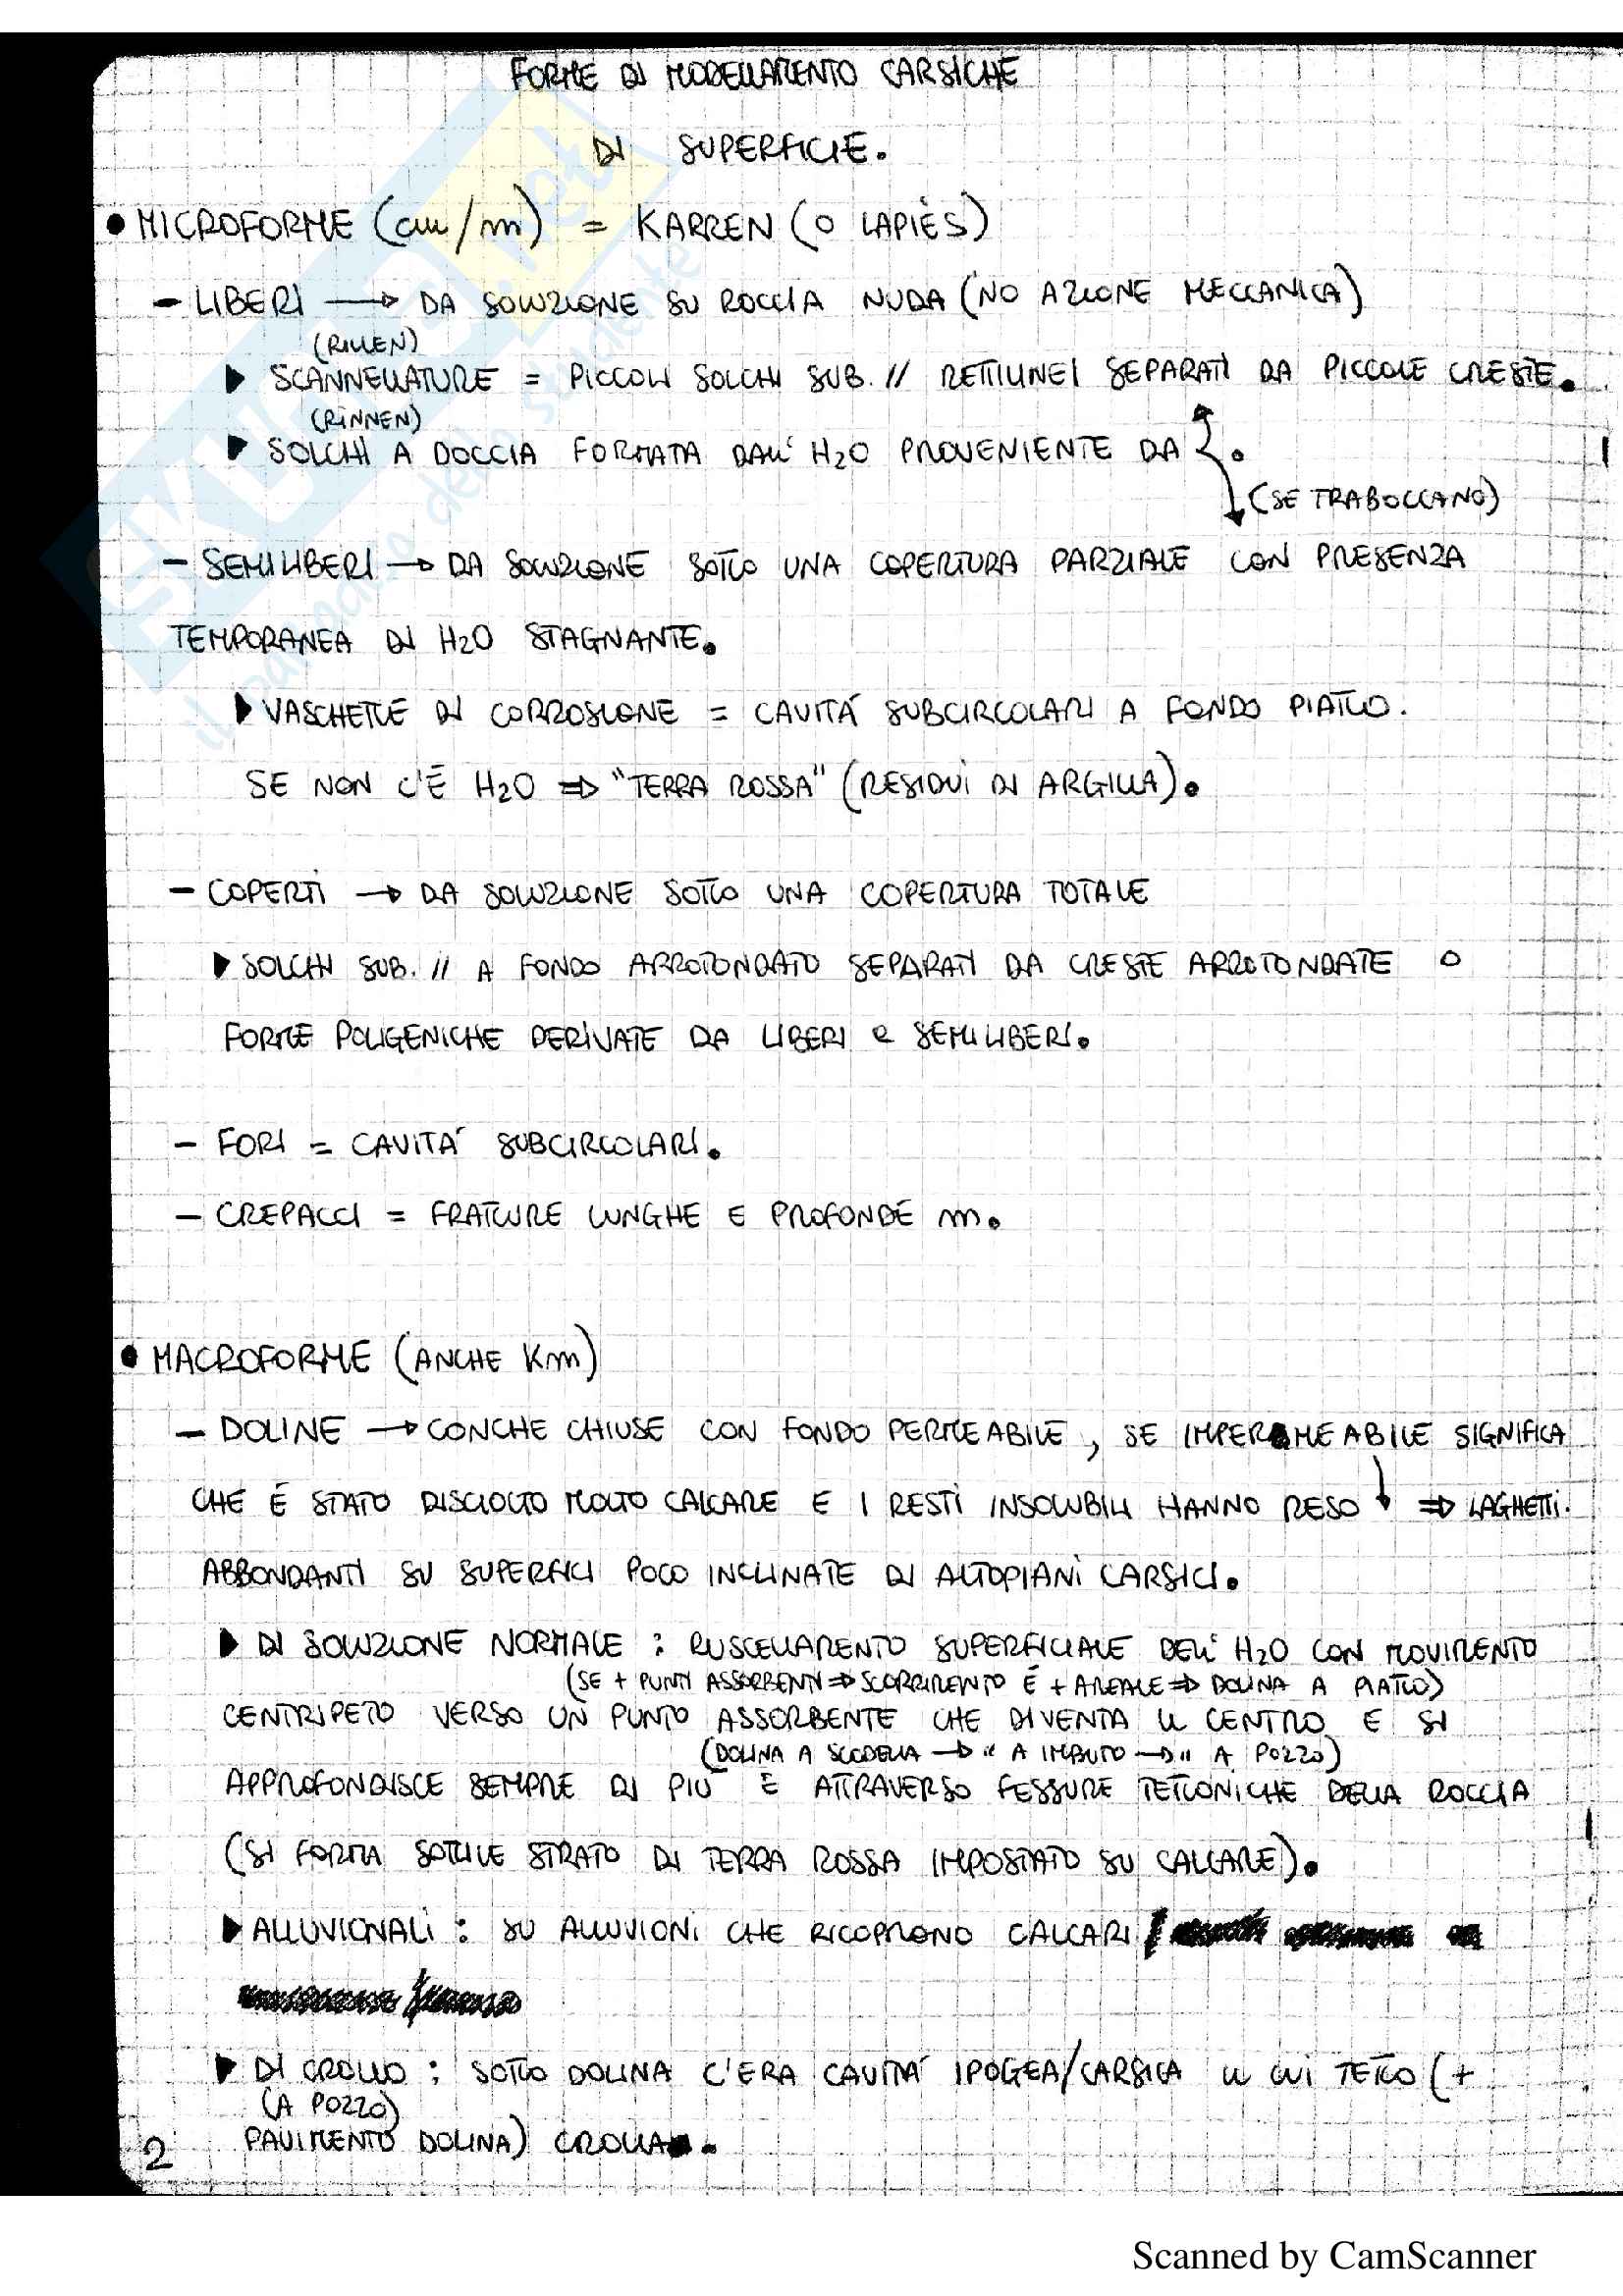 FORME DI MODELLAMENTO CARSICHE
DI SUPERFICIE.
• MICROFORME (cm/m) = KARREN (O LAPIÈS)
– LIBERI → DA SOLUZIONE SU ROCCIA NUDA (NO AZIONE MECCANICA)
(RILLEN)
▶ SCANNELLATURE = PICCOLI SOLCHI SUB. // RETTILINEI SEPARATI DA PICCOLE CRESTE.
(RINNEN)
▶ SOLCHI A DOCCIA FORMATA DALL' H2O PROVENIENTE DA .
(SE TRABOCCANO)
– SEMILIBERI → DA SOLUZIONE SOTTO UNA COPERTURA PARZIALE CON PRESENZA
TEMPORANEA DI H2O STAGNANTE.
▶ VASCHETTE DI CORROSIONE = CAVITÀ SUBCIRCOLARI A FONDO PIATTO.
SE NON C'È H2O ⇒ "TERRA ROSSA" (RESIDUI DI ARGILLA).
– COPERTI → DA SOLUZIONE SOTTO UNA COPERTURA TOTALE
▶ SOLCHI SUB. // A FONDO ARROTONDATO SEPARATI DA CRESTE ARROTONDATE O
FORME POLIGENICHE DERIVATE DA LIBERI E SEMILIBERI.
– FORI = CAVITÀ SUBCIRCOLARI.
– CREPACCI = FRATTURE LUNGHE E PROFONDE m.
• MACROFORME (ANCHE Km)
– DOLINE → CONCHE CHIUSE CON FONDO PERMEABILE, SE IMPERMEABILE SIGNIFICA
CHE È STATO DISCIOLTO MOLTO CALCARE E I RESTI INSOLUBILI HANNO RESO ↓ ⇒ LAGHETTI.
ABBONDANTI SU SUPERFICI POCO INCLINATE DI ALTOPIANI CARSICI.
▶ DI SOLUZIONE NORMALE : RUSCELLAMENTO SUPERFICIALE DELL' H2O CON MOVIMENTO
(SE + PUNTI ASSORBENTI ⇒ SCORRIMENTO È + AREALE ⇒ DOLINA A PIATTO)
CENTRIPETO VERSO UN PUNTO ASSORBENTE CHE DIVENTA IL CENTRO E SI
(DOLINA A SCODELLA → " A IMBUTO → " A POZZO)
APPROFONDISCE SEMPRE DI PIÙ E ATTRAVERSO FESSURE TETTONICHE DELLA ROCCIA
(SI FORMA SOTTILE STRATO DI TERRA ROSSA IMPOSTATO SU CALCARE).
▶ ALLUVIONALI : SU ALLUVIONI CHE RICOPRONO CALCARI
▶ DI CROLLO : SOTTO DOLINA C'ERA CAVITÀ IPOGEA/CARSICA IL CUI TETTO (+
(A POZZO)
PAVIMENTO DOLINA) CROLLA.
2
Scanned by CamScanner